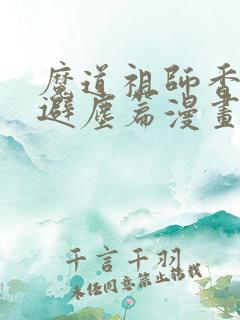 魔道祖師香
避塵篇漫畫
千言千羽
未经同意禁止转载